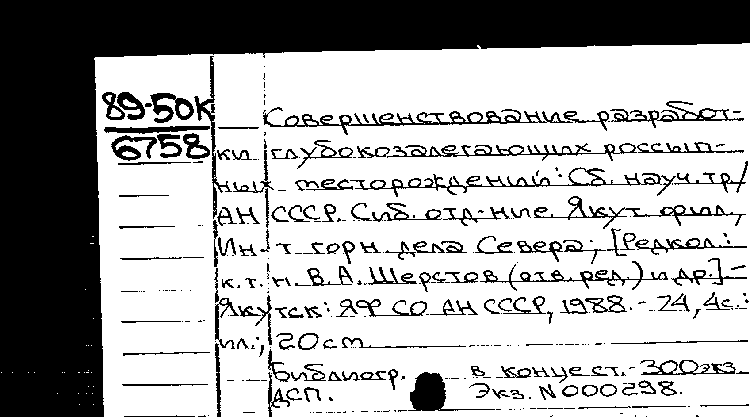 89-50К
6758
Совершенствование разработ-
ки глубокозалегающих россып-
ных месторождений: Сб. науч. тр./
АН СССР. Сиб. отд-ние. Якут. фил.,
Ин-т горн. дела Севера; [Редкол.:
к.т.н. В.А. Шерстов (отв. ред.) и др.].-
Якутск: ЯФ СО АН СССР, 1988.- 74, 4с.:
ил.; 20 cm.
Библиогр. в конце ст.- 300 экз.
ДСП. Экз. N 000298.